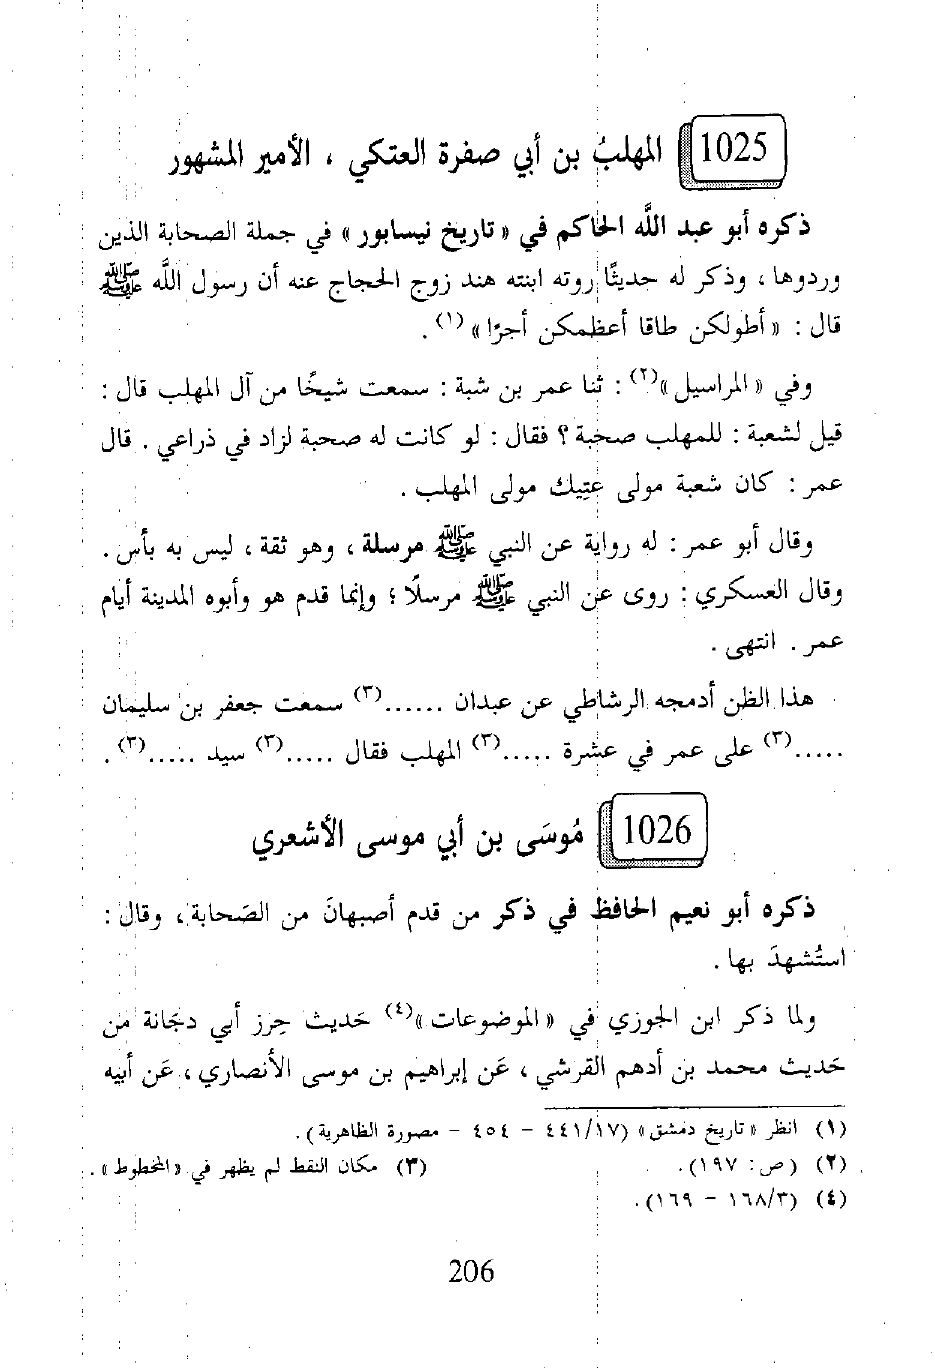 1025 المهلبُ بن أبي صفرة العتكي ، الأمير المشهور
ذكره أبو عبد اللَّه الحاكم في « تاريخ نيسابور » في جملة الصحابة الذين
وردوها ، وذكر له حديثًا روته ابنته هند زوج الحجاج عنه أن رسول اللَّه ﷺ
قال : « أطولكن طاقا أعظمكن أجرًا »(١) .
وفي « المراسيل »(٢) : ثنا عمر بن شبة : سمعت شيخًا من آل المهلب قال :
قيل لشعبة : للمهلب صحبة ؟ فقال : لو كانت له صحبة لزاد في ذراعي . قال
عمر : كان شعبة مولى عتِيك مولى المهلب .
وقال أبو عمر : له رواية عن النبي ﷺ مرسلة ، وهو ثقة ، ليس به بأس .
وقال العسكري : روى عن النبي ﷺ مرسلًا ؛ وإنما قدم هو وأبوه المدينة أيام
عمر . انتهى .
هذا الظن أدمجه الرشاطي عن عبدان ......(٣) سمعت جعفر بن سليمان
.....(٣) على عمر في عشرة .....(٣) المهلب فقال .....(٣) سيد .....(٣) .
1026 مُوسَى بن أبي موسى الأشعري
ذكره أبو نعيم الحافظ في ذكر من قدم أصبهانَ من الصَحابة ، وقال :
استُشهدَ بها .
ولما ذكر ابن الجوزي في « الموضوعات »(٤) حَديث حِرز أبي دجَانة من
حَديث محمد بن أدهم القرشي ، عَن إبراهيم بن موسى الأنصاري ، عَن أبيه
(١) انظر « تاريخ دمشق » (٤٤١/١٧ – ٤٥٤ – مصورة الظاهرية ) .
(٢) (ص : ١٩٧) . (٣) مكان النقط لم يظهر في « المخطوط » .
(٤) (١٦٨/٣ – ١٦٩) .
206